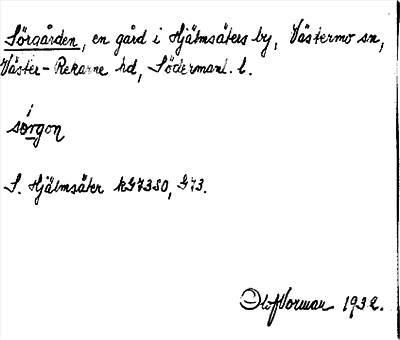 Sörgården, en gård i Hjälmsäters by, Västermo sn,
Väster-Rekarne hd, Söderманl. l.
i sörgon
S. Hjälmsäter kG7350, G73.
Olof Norman 1932.